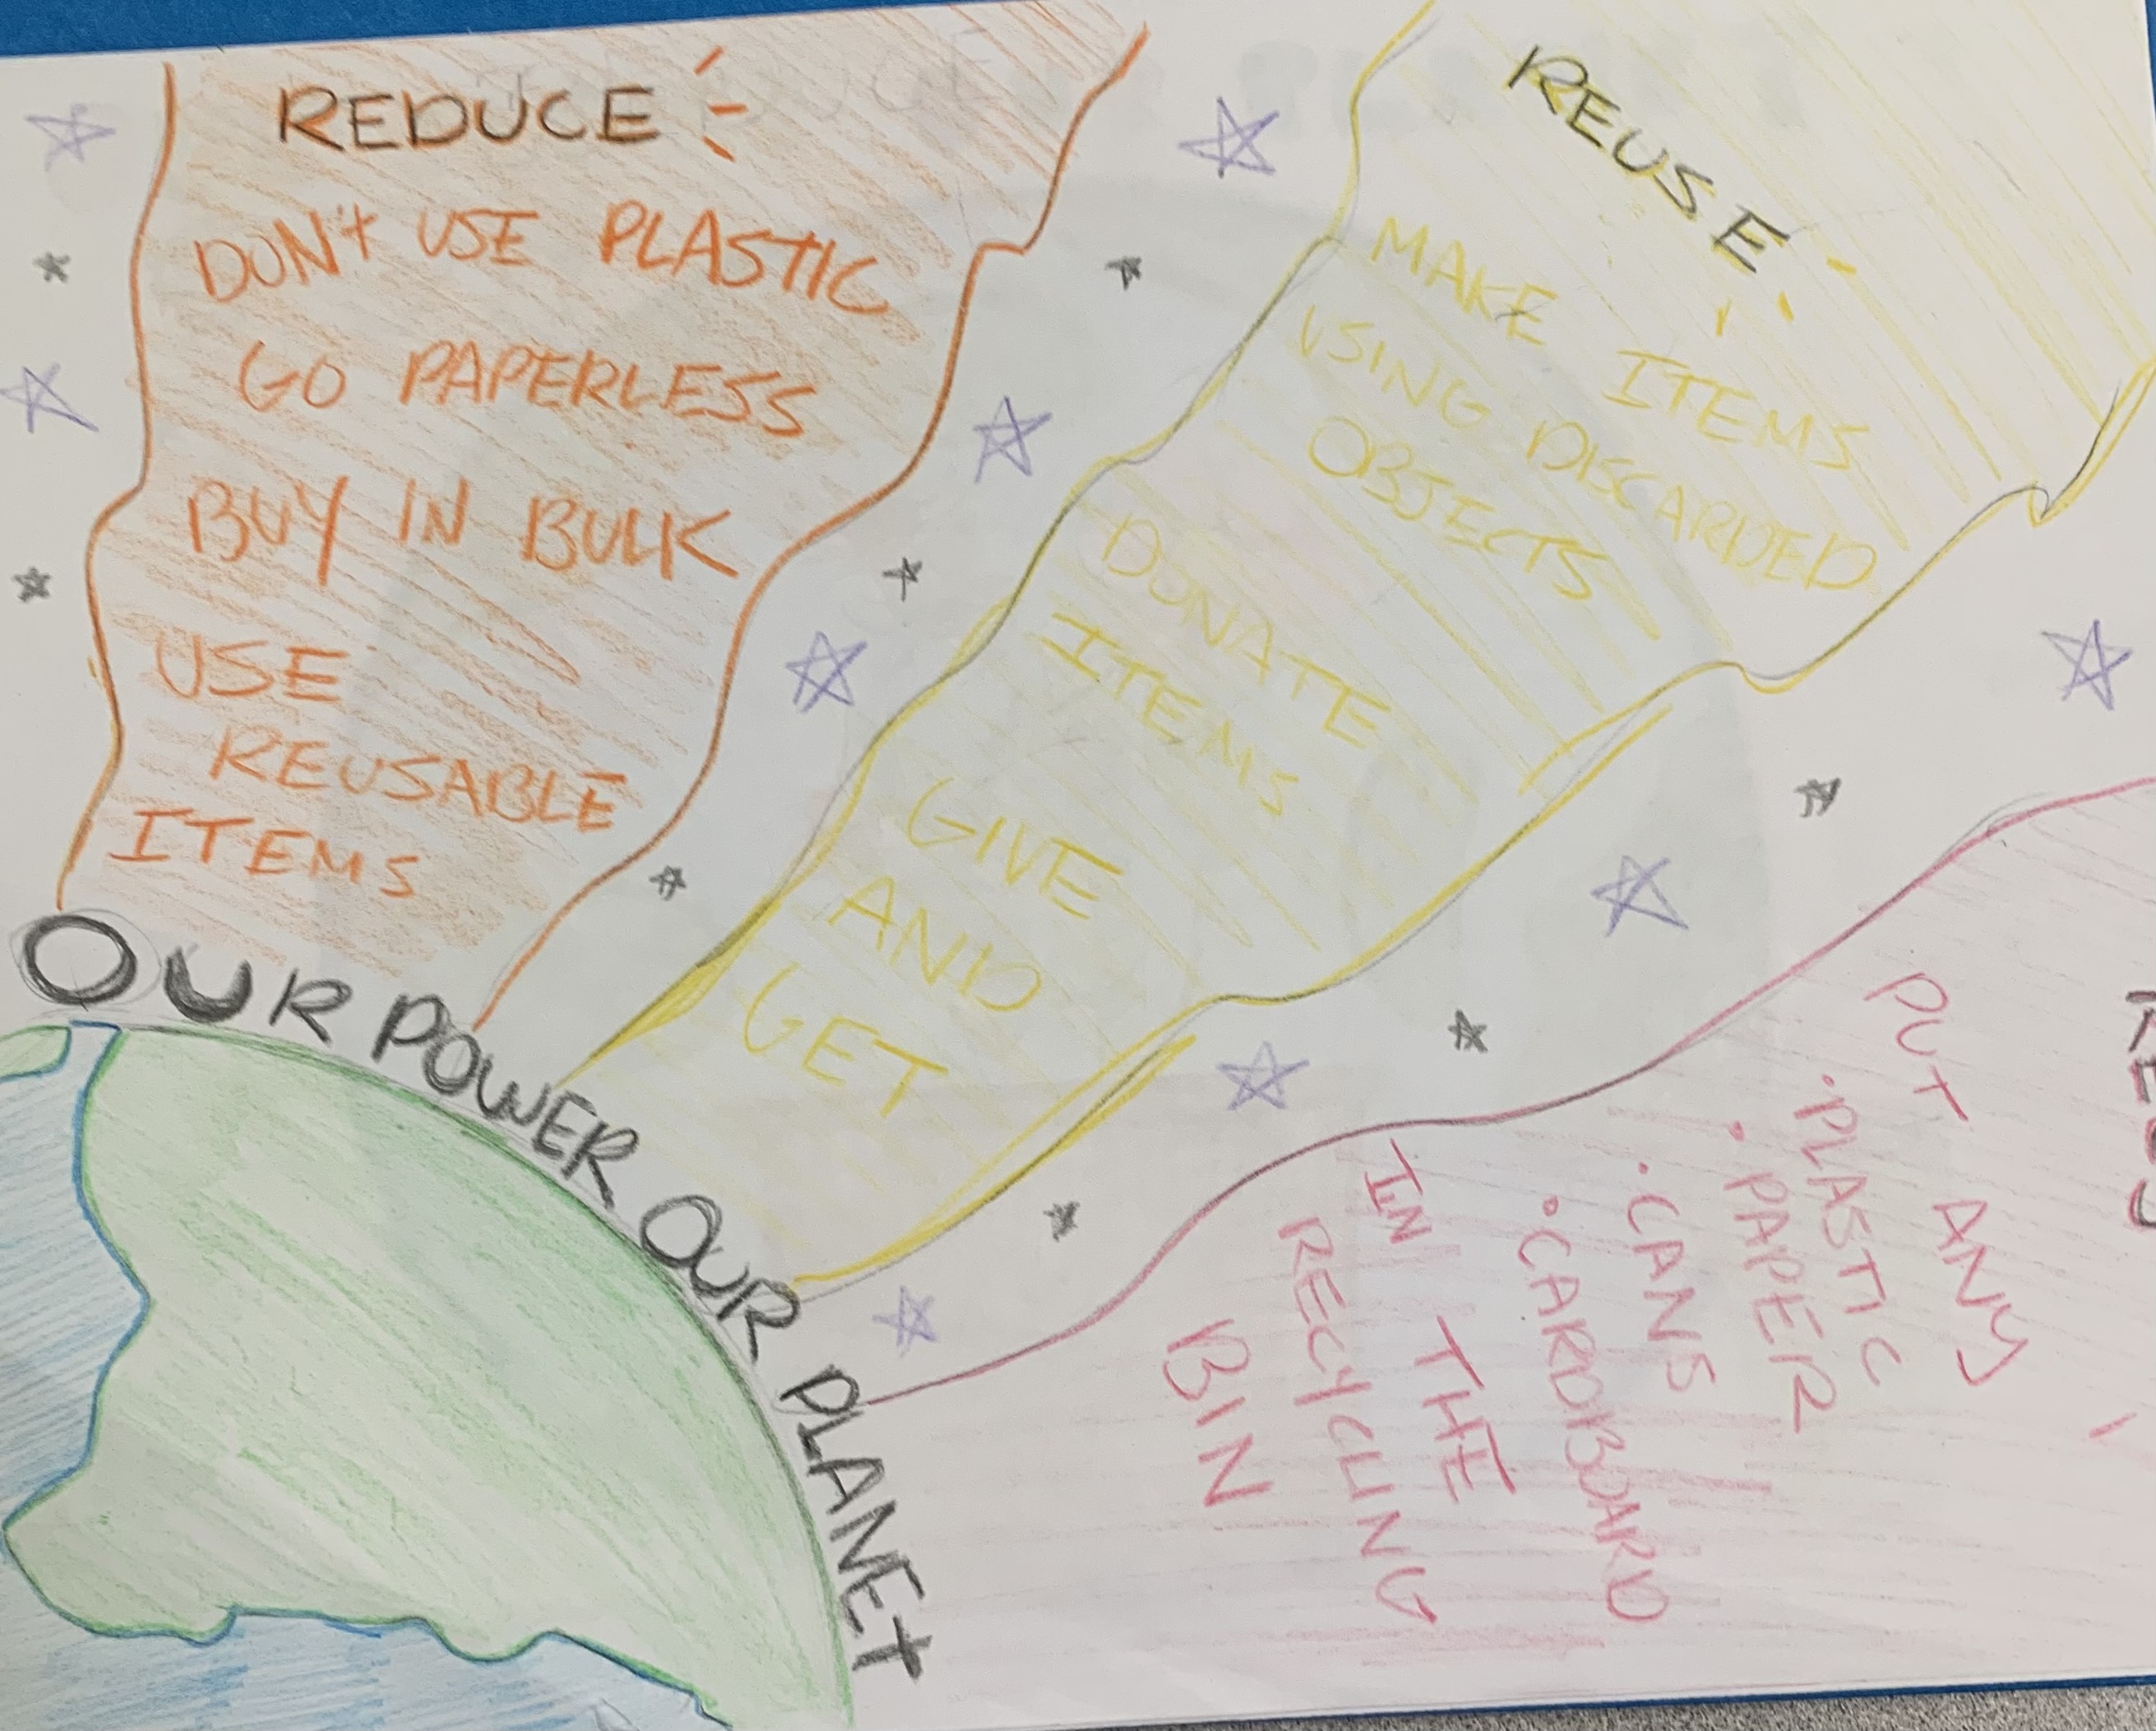 REDUCE
DON't USE PLASTIC
GO PAPERLESS
BUY IN BULK
USE
REUSABLE
ITEMS
REUSE
MAKE ITEMS
USING DISCARDED
OBJECTS
DONATE
ITEMS
GIVE
AND
GET
PUT ANY
• PLASTIC
• PAPER
• CANS
• CARDBOARD
IN THE
RECYCLING
BIN
OUR POWER OUR PLANEt